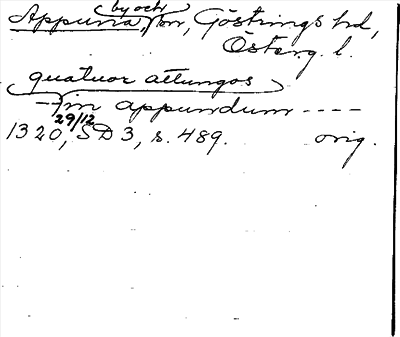 Appunna, by och sn, Göstrings hd,
Österg. l.
quatuor attungos
in appundum ----
1320 29/12, SD 3, s. 489. orig.